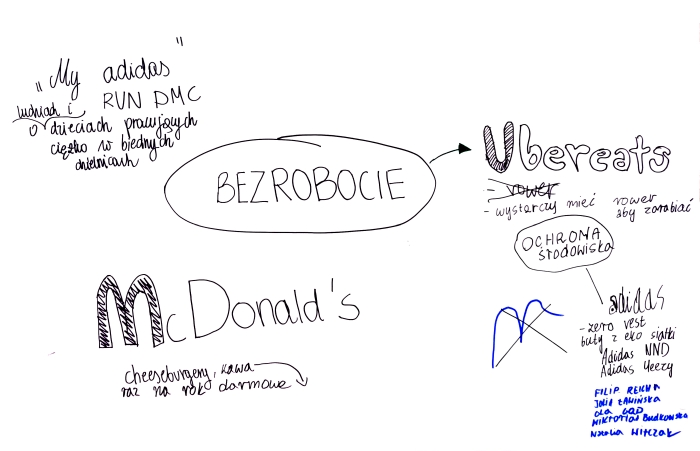 "My adidas"
RUN DMC
ludziach i
o dzieciach pracujących
ciężko w biednych
dzielnicach
BEZROBOCIE
Ubereats
- rower
- wystarczy mieć rower
aby zarabiać
OCHRONA
środowiska
McDonald's
cheeseburgery, kawa
raz na rok darmowe
adidas
- zero vest
buty z eko siatki
Adidas NND
Adidas Yeezy
FILIP REICHA
Julia ŁAWIŃSKA
OLA GĄD
WIKTORIA Budkowska
Natalia WITCZAK